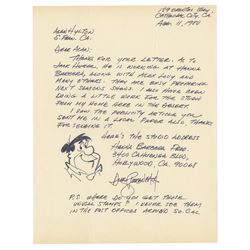 Apr. 11, 1980
Dear Alan:
Thanks for your letter. As to
Jack Huber, he is working at Hanna
Barbera, along with Alex Lovy and
many others. They are busy preparing
next seasons shows. I have been
doing a little work for the studio
from my home here in the desert
I saw the publicity article you
sent me in a local paper also. Thanks
for sending it.
Here's the studio address
Hanna Barbera Prod.
3400 Cahuenga Blvd,
Hollywood, CA. 90068
P.S. Where do you get those
unusual stamps? I never see them
in the post offices around So. Cal.